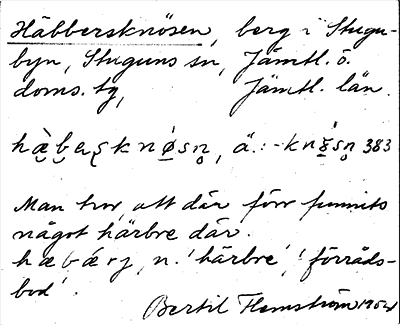 Häbbersknösen, berg i Stugu-
byn, Stuguns sn, Jämtl. ö.
doms. tg, Jämtl. län.
Man tror att där förr funnits
något härbre där.
n. 'härbre', 'förråds-
bod'.
Bertil Flemström 1954